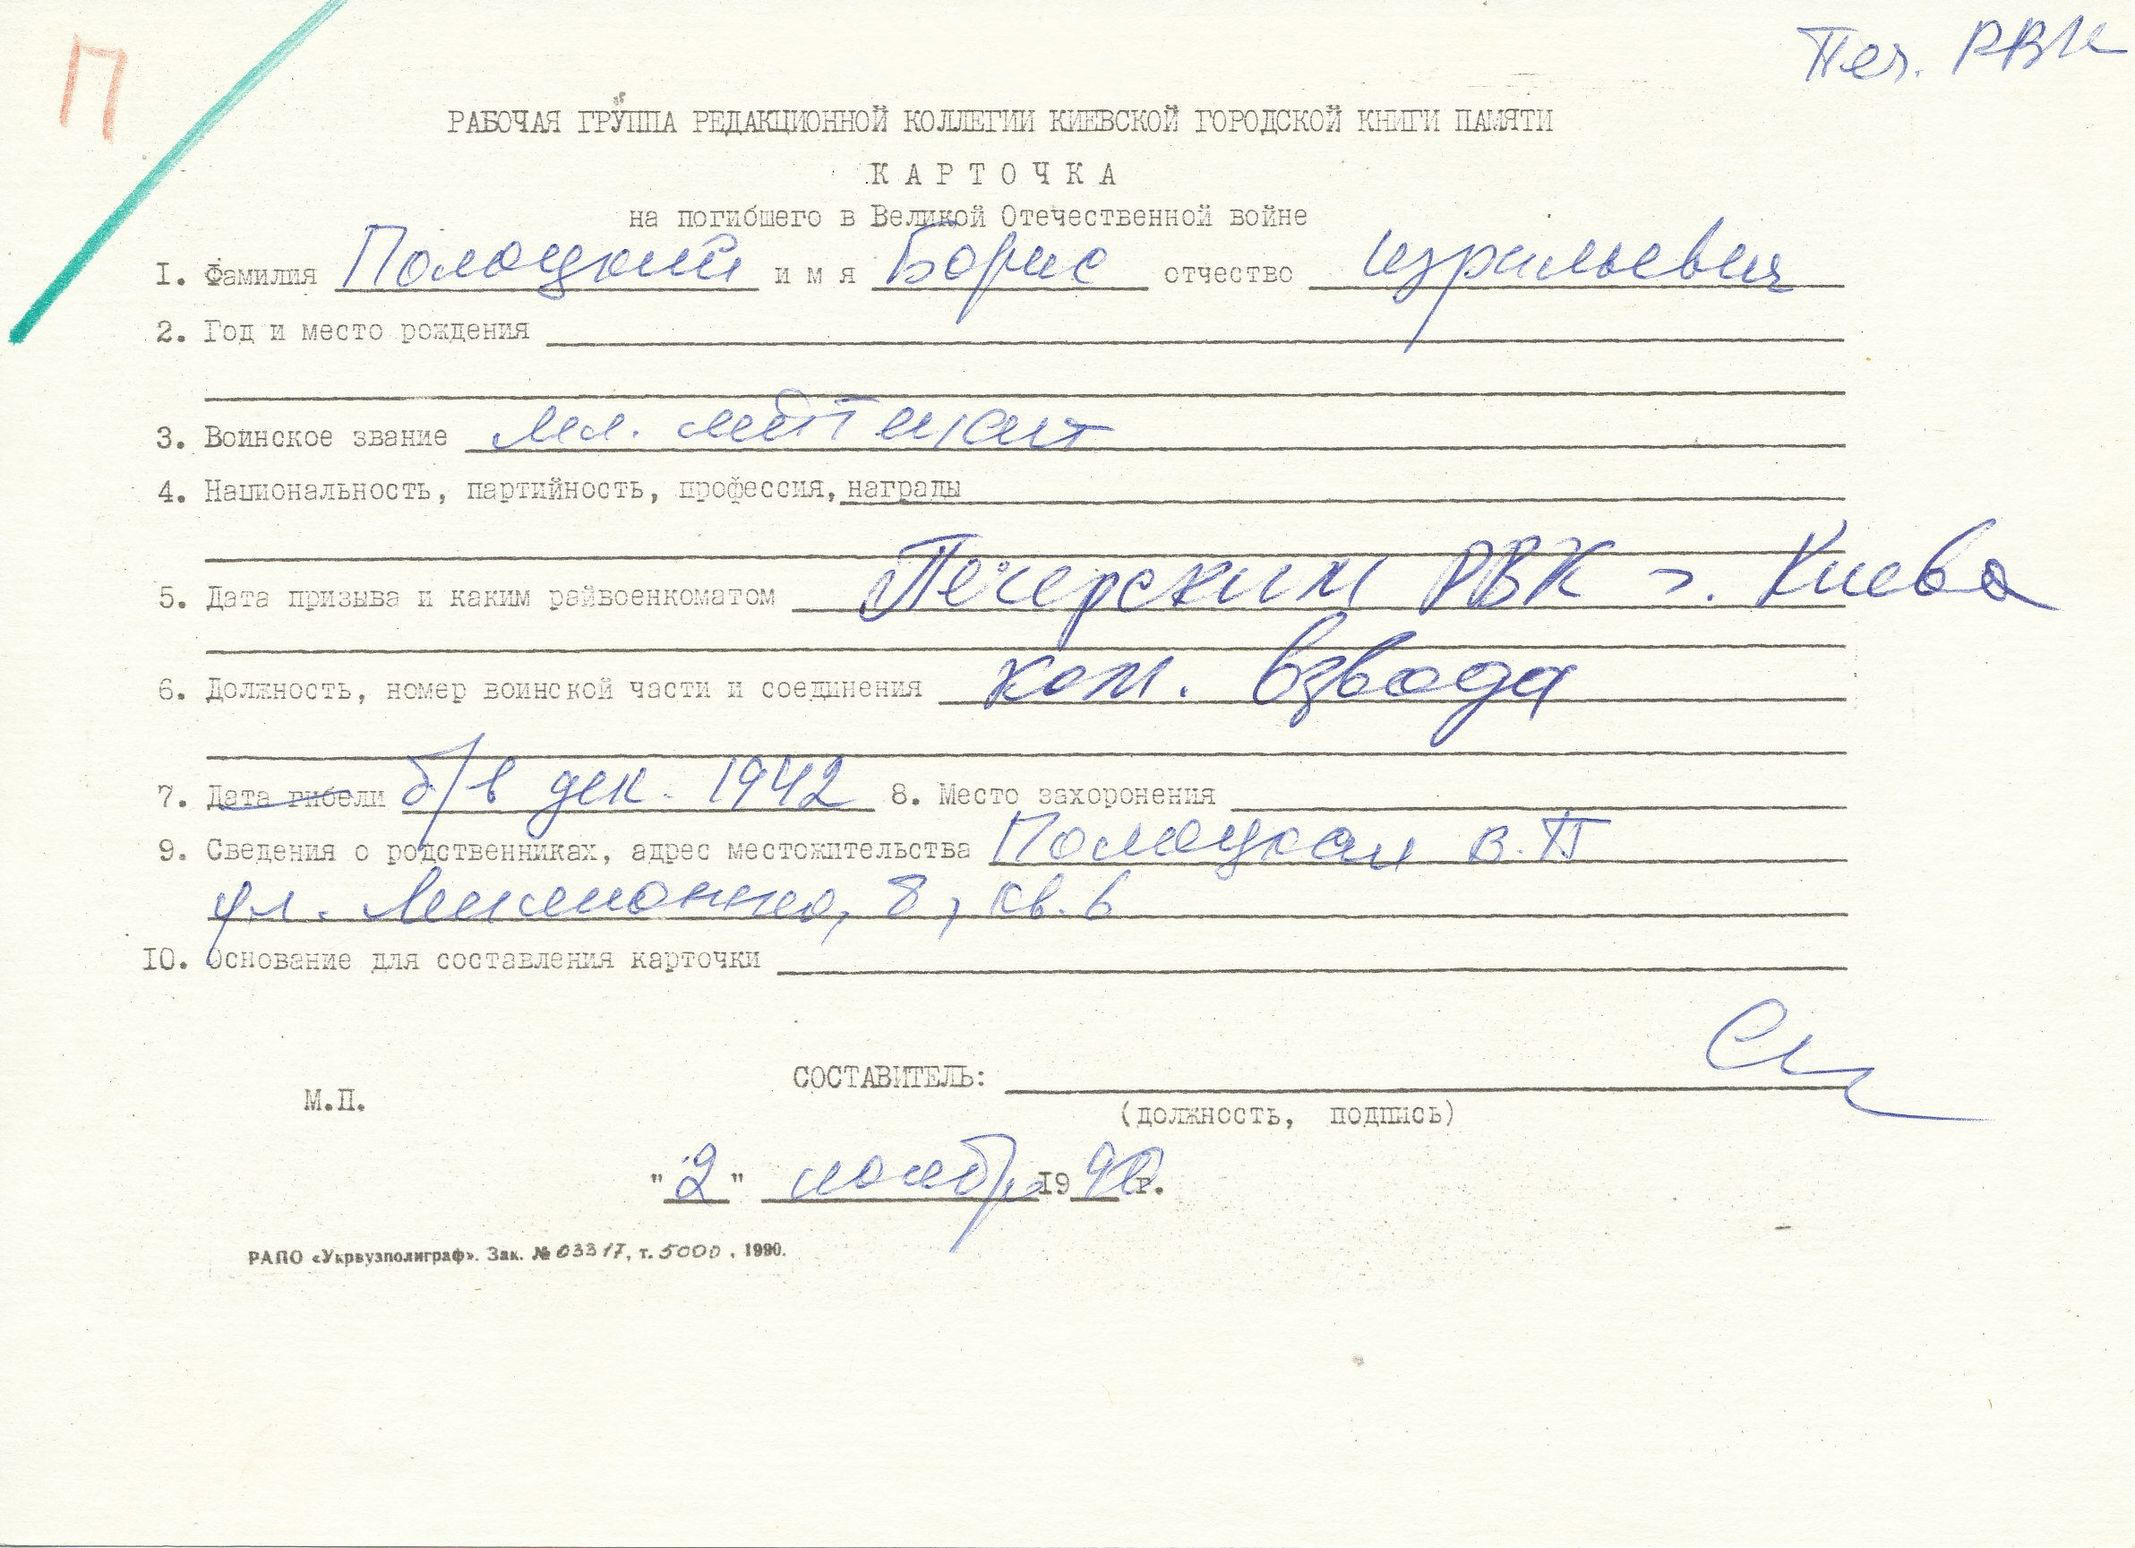 П
Печ. РВК
РАБОЧАЯ ГРУППА РЕДАКЦИОННОЙ КОЛЛЕГИИ КИЕВСКОЙ ГОРОДСКОЙ КНИГИ ПАМЯТИ
КАРТОЧКА
на погибшего в Великой Отечественной войне
1. Фамилия Полоцкий имя Борис отчество Израильевич
2. Год и место рождения
3. Воинское звание мл. лейтенант
4. Национальность, партийность, профессия, награды
5. Дата призыва и каким райвоенкоматом Печерским РВК г. Киева
6. Должность, номер воинской части и соединения ком. взвода
7. Дата гибели б/в дек. 1942 8. Место захоронения
9. Сведения о родственниках, адрес местожительства Полоцкая В.П
ул. 8, кв. 6
10. Основание для составления карточки
СОСТАВИТЕЛЬ:
М.П.
(должность, подпись)
"2" ноября 1990 г.
РАПО «Укрвузполиграф». Зак. № 03317, т. 5000, 1990.